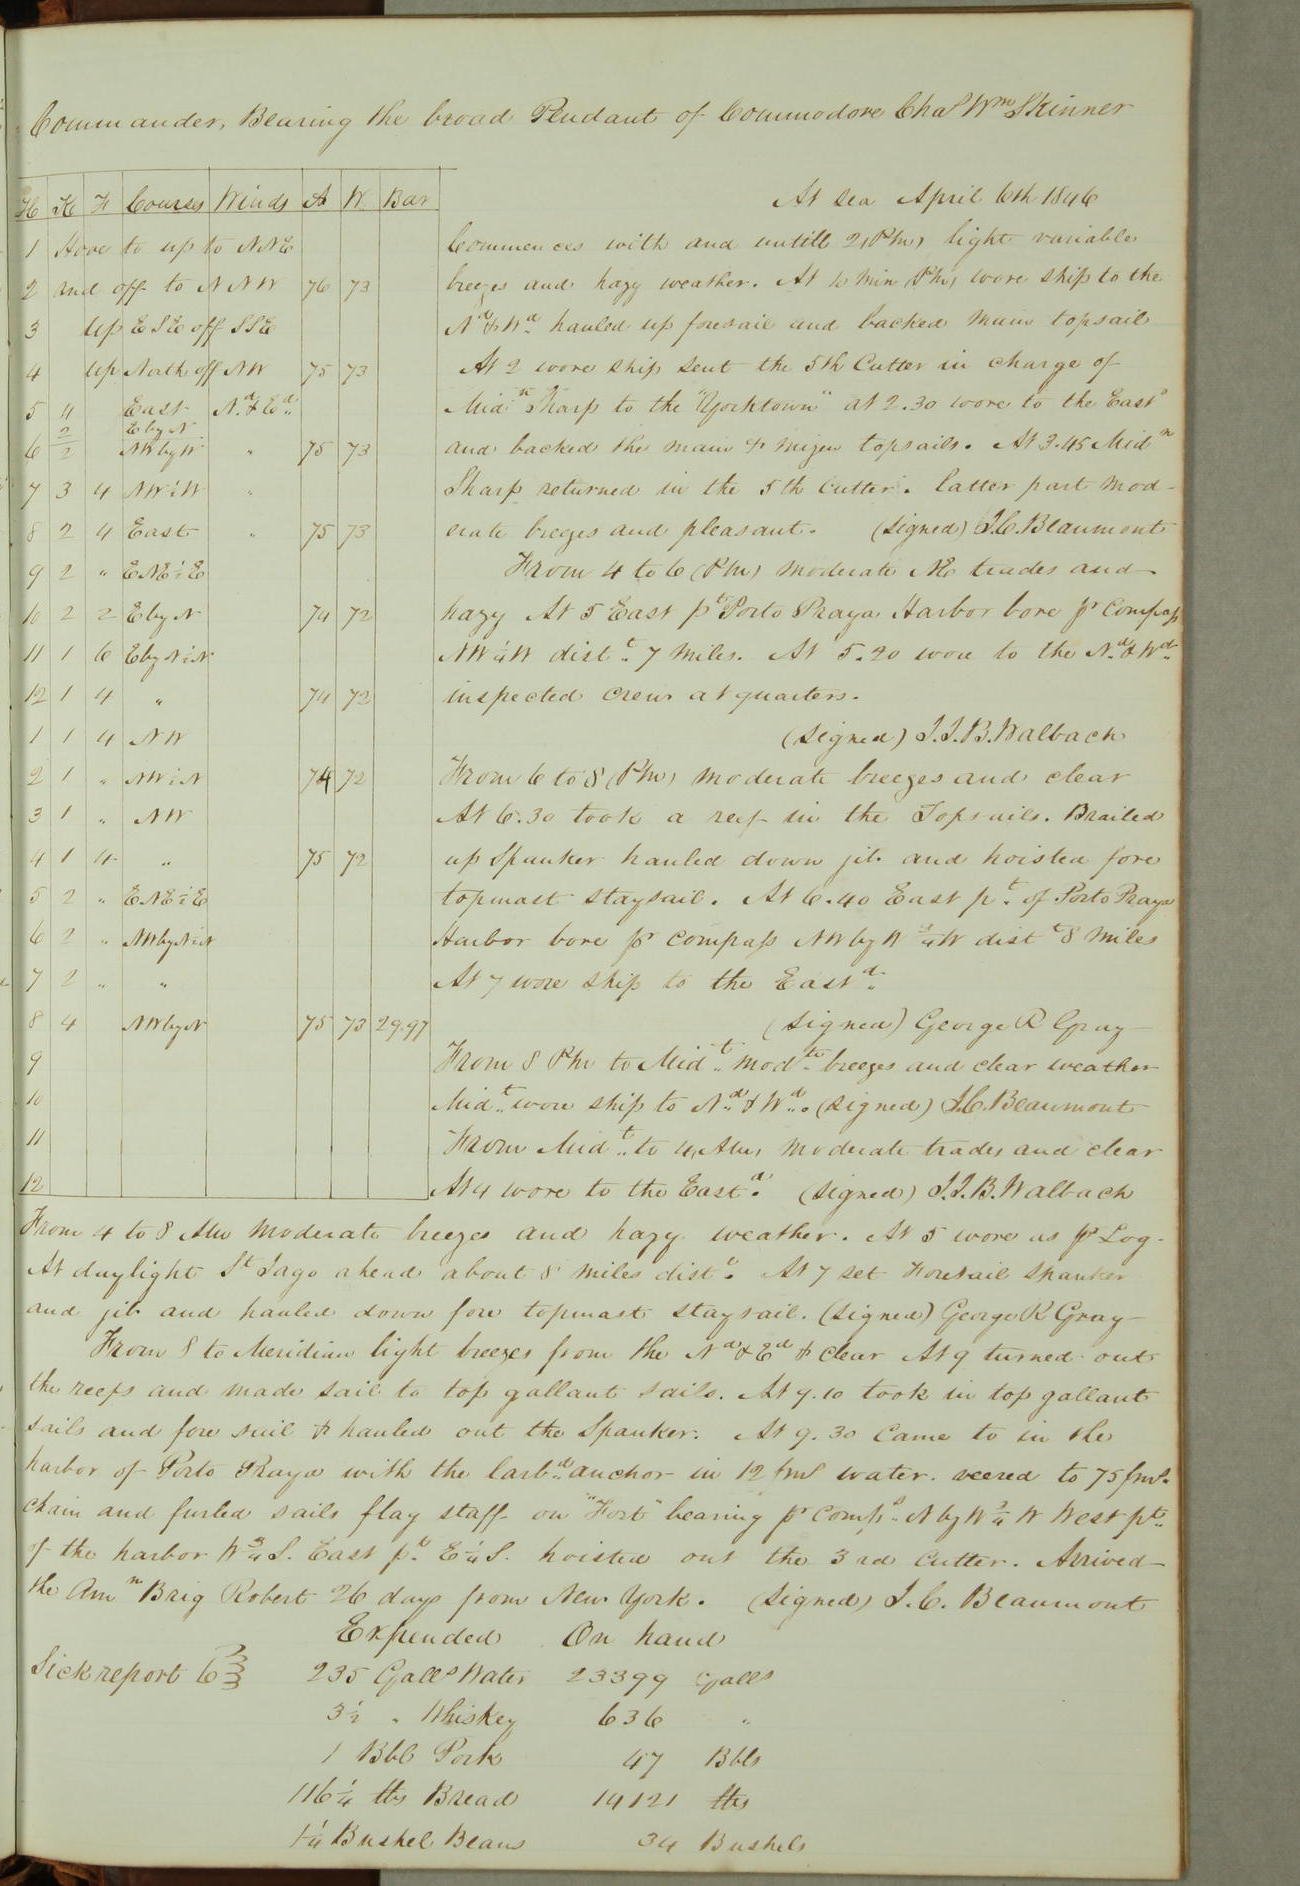 Commander, Bearing the broad Pendant of Commodore Chas Wm Skinner
H K F Courses Winds A W Bar
At Sea April 6th 1846
1 Hove to up to NNE
2 and off to NNW 76 73
3 up ESE off SSE
4 up North off NW 75 73
5 4 East Nd & Ed
2 E by N
6 2 NW by W " 75 73
7 3 4 NW ½ W "
8 2 4 East " 75 73
9 2 " ENE ½ E
10 2 2 E by N 74 72
11 1 6 E by N ½ N
12 1 4 " 74 72
1 1 4 NW
2 1 " NW ½ N 74 72
3 1 " NW
4 1 4 " 75 72
5 2 " ENE ½ E
6 2 " NW by N ½ N
7 2 " "
8 4 NW by N 75 73 29.97
9
10
11
12
Commences with and untill 2 PM, light variable
breezes and hazy weather. At 10 min PM, wore ship to the
Nd & Wd hauled up foresail and backed main topsail
At 2 wore ship sent the 5th Cutter in charge of
Midn Sharp to the "Yorktown" at 2.30 wore to the Eastd
and backed the main & mizen topsails. At 3.45 Midn
Sharp returned in the 5th Cutter. latter part mod-
erate breezes and pleasant. (signed) J.C. Beaumont
From 4 to 6 (PM) moderate NE trades and
hazy At 5 East pt Porto Praya Harbor bore pr compass
NW ¼ W distt 7 Miles. At 5.20 wore to the Nd & Wd
inspected crew at quarters.
(signed) J.J.B. Walbach
From 6 to 8 (PM) moderate breezes and clear
At 6.30 took a reef in the Topsails. Brailed
up Spanker hauled down jib and hoisted fore
topmast staysail. At 6.40 East pt of Porto Praya
Harbor bore pr compass NW by W ¾ W distt 8 Miles
At 7 wore ship to the Eastd
(signed) George R Gray
From 8 PM to Midt modte breezes and clear weather
Midt wore ship to Nd & Wd. (signed) J.C. Beaumont
From Midt to 4 AM, moderate trades and clear
At 4 wore to the Eastd. (signed) J.J.B. Walbach
From 4 to 8 AM moderate breezes and hazy weather. At 5 wore as pr Log.
At daylight St Jago ahead about 8 miles distt. At 7 set Foresail spanker
and jib and hauled down fore topmast staysail. (signed) George R Gray
From 8 to Meridian light breezes from the Nd & Ed & clear At 9 turned out
the reefs and made sail to top gallant sails. At 9.10 took in top gallant
sails and fore sail & hauled out the Spanker. At 9.30 Came to in the
harbor of Porto Praya with the larbd anchor in 12 fms water. veered to 75 fms.
chain and furled sails flag staff on "Fort" bearing pr Comps N by W ¾ W West pt
of the harbor W ¾ S. East pt E ¼ S. hoisted out the 3rd Cutter. Arrived
the Amn Brig Robert 26 days from New York. (signed) J.C. Beaumont
Expended On hand
Sick report 6 235 Galls Water 23399 Galls
3½ " Whiskey 636 "
1 Bbl Pork 47 Bbls
116¼ lbs Bread 14121 lbs
1¼ Bushel Beans 34 Bushels